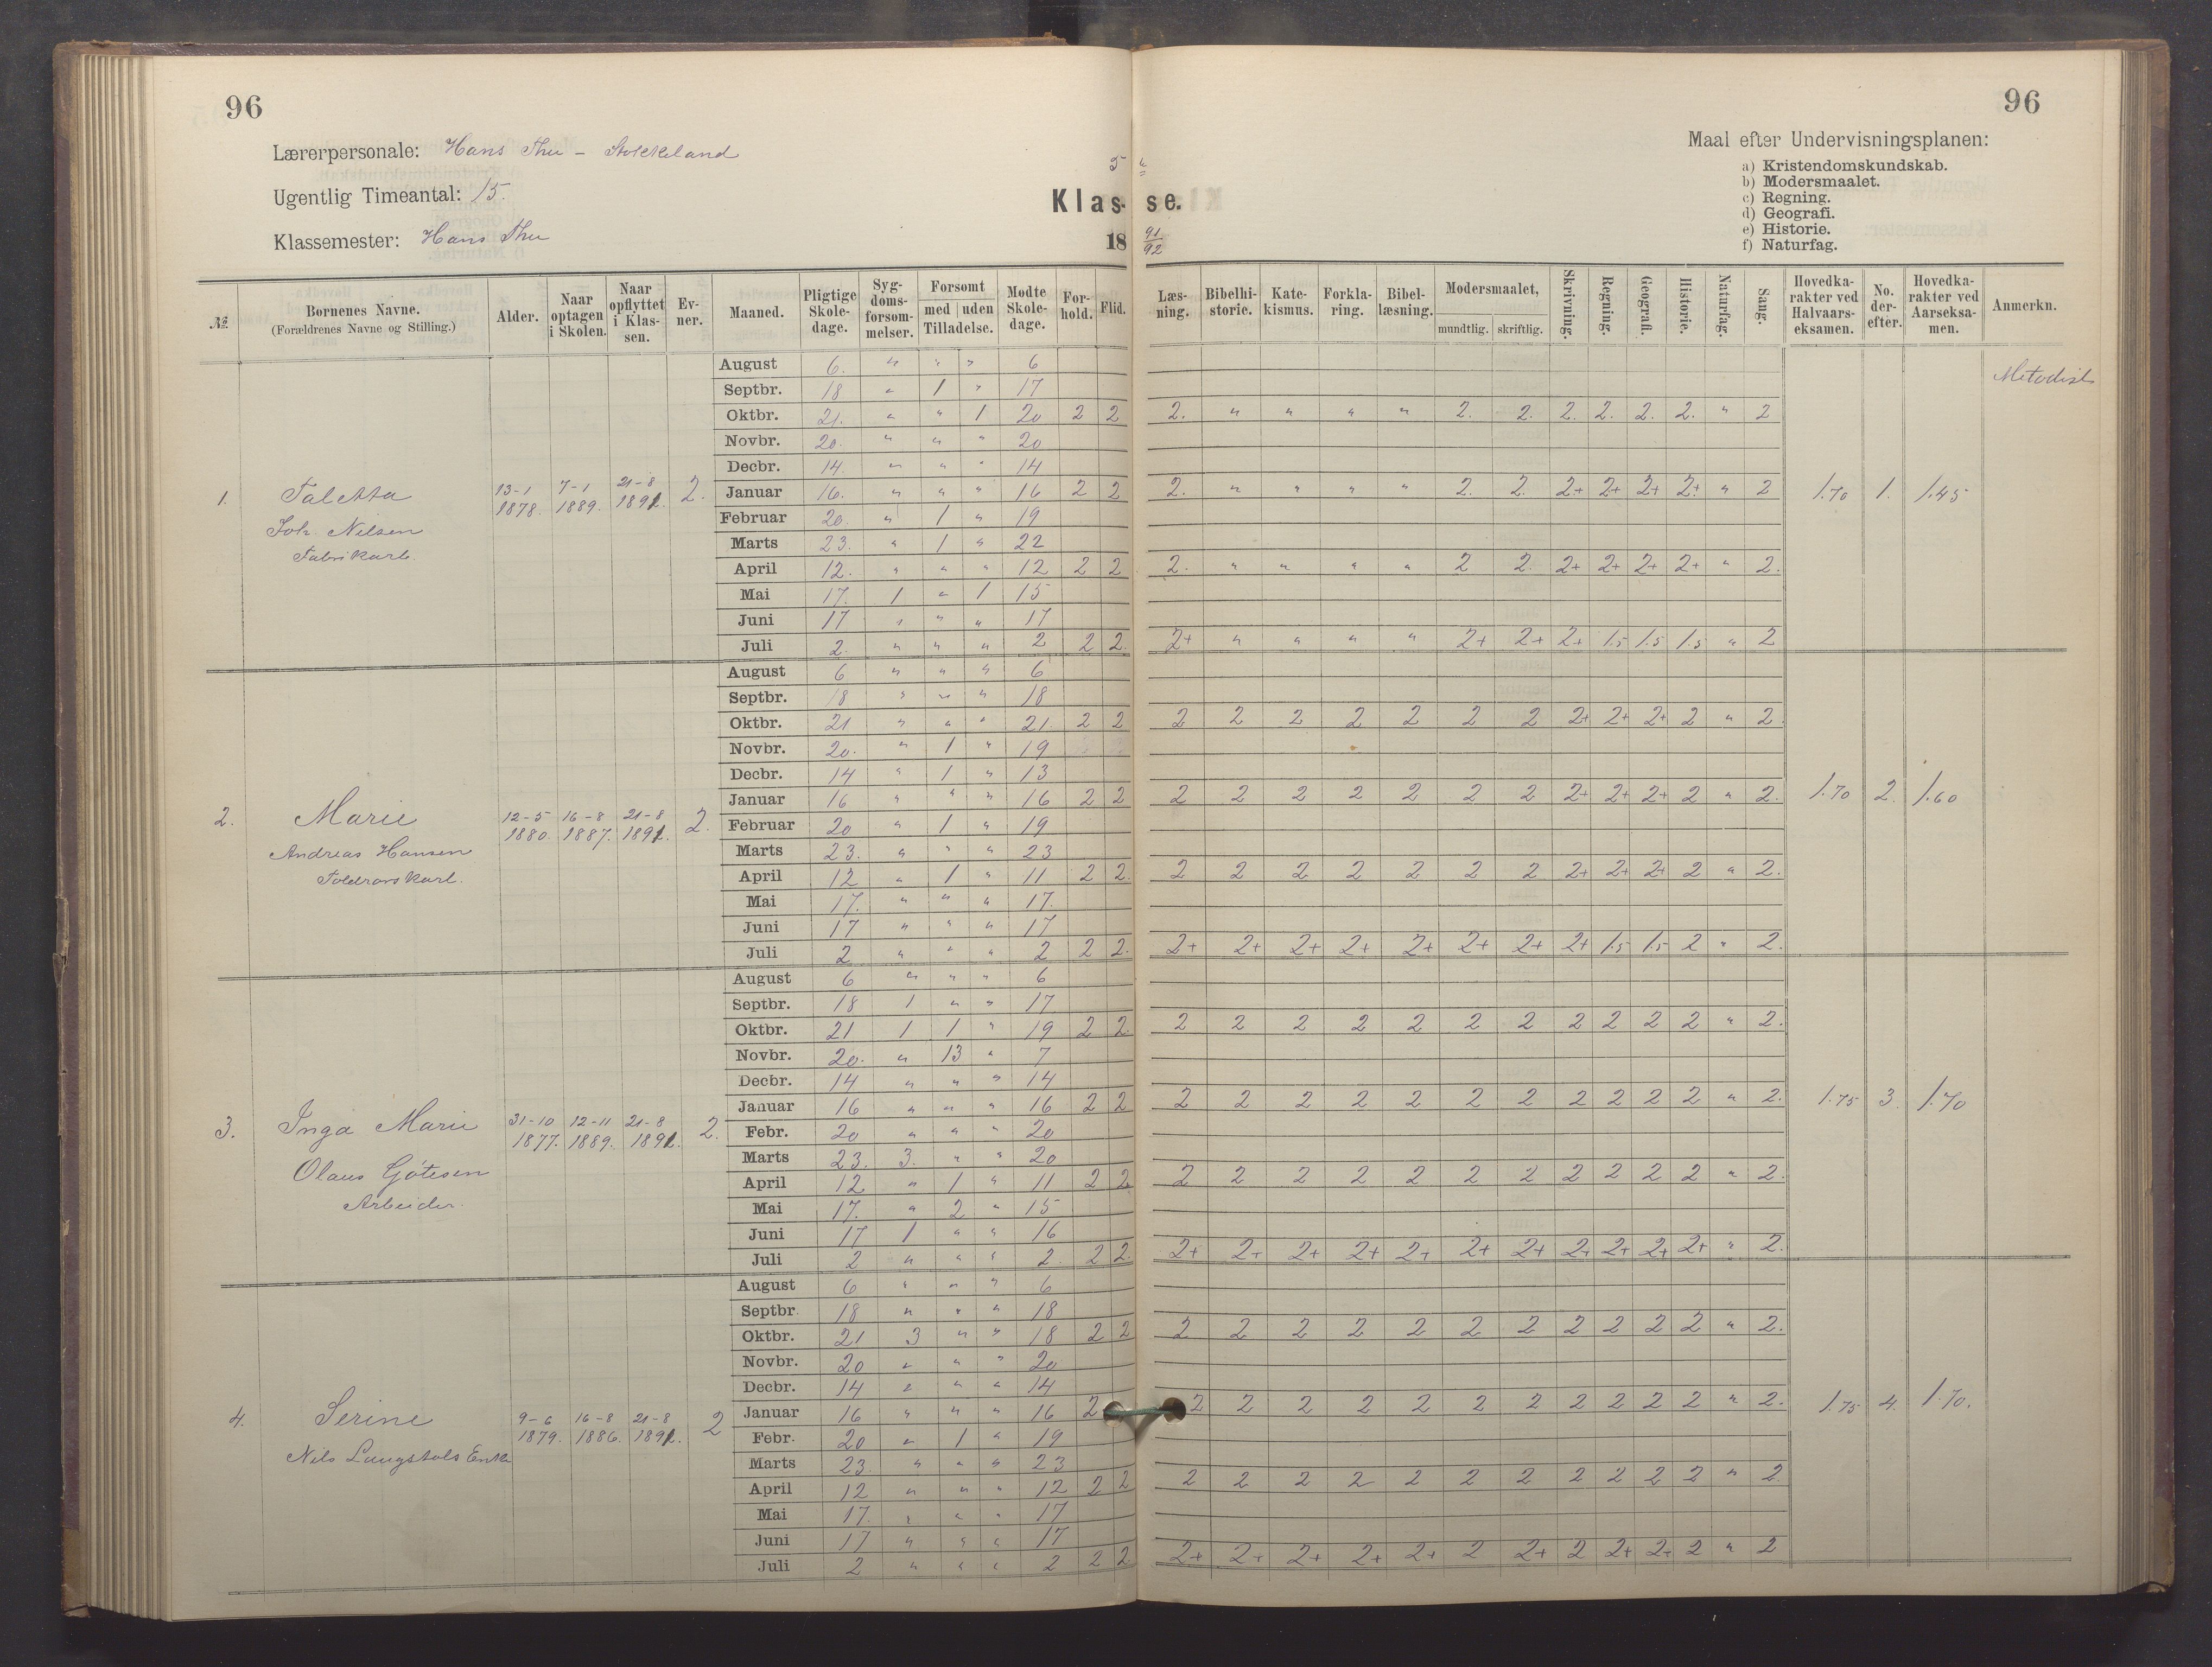 96
Lærerpersonale: Hans Thu – Stokkeland
Ugentlig Timeantal: 15.
Klassemester: Hans Thu
5
Klas-
18
№ | Børnenes Navne. (Forældrenes Navne og Stilling.) | Alder. | Naar optagen i Skolen. | Naar opflyttet i Klassen. | Evner. | Maaned. | Pligtige Skoledage. | Sygdomsforsømmelser. | Forsømt med uden Tilladelse. | Mødte Skoledage. | Forhold. | Flid.
August 6. " " " 6
Septbr. 18 " 1 " 17
Oktbr. 21. " " 1 20 2 2
Novbr. 20. " " " 20
Decbr. 14. " " " 14
1. Taletta 13-1 1878. 7-1 1889. 21-8 1891. 2. Januar 16. " " " 16 2 2
Joh. Nilsen Februar 20. " 1 " 19
Fabrikarb. Marts 23. " 1 " 22
April 12. " " " 12 2 2
Mai 17. 1 " 1 15
Juni 17 " " " 17
Juli 2. " " " 2 2 2.
August 6 " " " 6
Septbr. 18 " " " 18
Oktbr. 21 " " " 21. 2 2
Novbr. 20. " 1 " 19
Decbr. 14 " 1 " 13
Januar 16 " " " 16 2 2
2. Marie 12-5 1880. 16-8 1887. 21-8 1891. 2. Februar 20 " 1 " 19
Andreas Hansen Marts 23. " " " 23
April 12 " 1 " 11 2 2.
Mai 17. " " " 17.
Juni 17 " " " 17
Juli 2 " " " 2 2 2.
August 6 " " " 6
Septbr. 18 1 " " 17
Oktbr. 21 1 1 " 19 2 2.
Novbr. 20. " 13 " 7
Decbr. 14 " " " 14
Januar 16 " " " 16 2 2
3. Inga Marie 31-10 1877. 12-11 1889. 21-8 1891. 2. Febr. 20 " " " 20
Marts 23. 3. " " 20
Olaus Gótesen April 12 " 1 " 11 2 2
Arbeider. Mai 17. " 2 " 15
Juni 17 1 " " 16
Juli 2 " " " 2. 2 2.
August 6 " " " 6
Septbr. 18 " " " 18
Oktbr. 21 3 " " 18 2 2
Novbr. 20 " " " 20
Decbr. 14 " " " 14
Januar 16 " " " 16 2
4. Serine 9-6 1879. 16-8 1886. 21-8 1891. 2 Febr. 20 " 1 " 19
Nils Marts 23. " " " 23
April 12 " " " 12 2 2
Mai 17. " " " 17
Juni 17 " " " 17
Juli 2 " " " 2 2 2
96
Maal efter Undervisningsplanen:
a) Kristendomskundskab.
b) Modersmaalet.
c) Regning.
d) Geografi.
e) Historie.
f) Naturfag.
se.
91
92
Læsning. | Bibelhistorie. | Katekismus. | Forklaring. | Bibellæsning. | Modersmaalet, mundtlig. skriftlig. | Skrivning. | Regning. | Geografi. | Historie. | Naturfag. | Sang. | Hovedkarakter ved Halvaarseksamen. | No. derefter. | Hovedkarakter ved Aarseksamen. | Anmerkn.
Metodist
2. " " " " 2. 2. 2. 2. 2. 2. " 2
2. " " " " 2. 2. 2+ 2+ 2+ 2+ " 2 1.70 1. 1.45
2. " " " " 2 2. 2+ 2+ 2+ 2+ " 2.
2+ " " " " 2+ 2+ 2+ 1.5 1.5 1.5 " 2
2 2 2 2 2 2 2 2+ 2+ 2+ 2 " 2.
2 2 2 2 2 2 2 2+ 2+ 2+ 2 " 2. 1.70 2. 1.60
2 2 2 2 2 2 2 2+ 2+ 2+ 2 " 2.
2+ 2+ 2+ 2+ 2+ 2+ 2+ 2+ 1.5 1.5 2 " 2.
2 2 2 2 2 2 2 2 2 2 2 " 2.
2 2 2 2 2 2 2 2 2 2 2 " 2. 1.75 3. 1.70
2 2 2 2 2 2 2 2 2 2 2 " 2.
2+ 2+ 2+ 2+ 2+ 2+ 2+ 2+ 2+ 2+ 2+ " 2.
2 2 2 2 2 2 2 2 2 2 2 " 2.
2 2 2 2 2 2 2 2 2 2 2 " 2. 1.75 4. 1.70.
2 2 2 2 2 2 2 2 2 2 2 " 2.
2+ 2+ 2+ 2+ 2+ 2 2+ 2 2+ 2+ 2 " 2